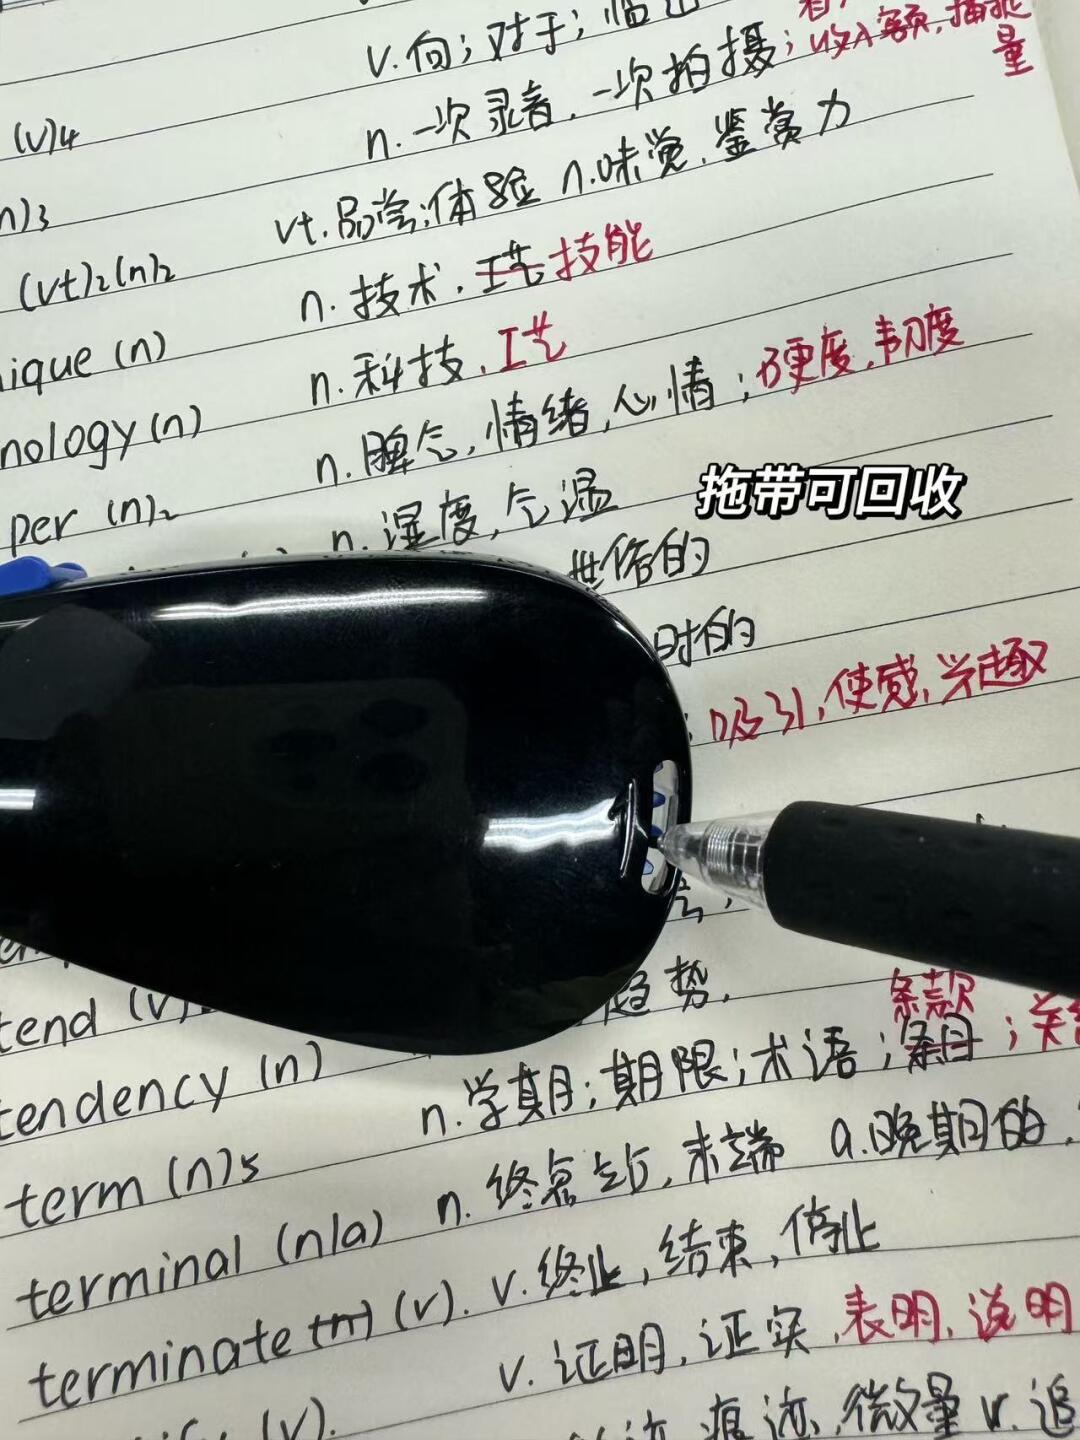 v. 向；对于；临近
n. 一次录音，一次拍摄；收入额，捕捉量
(v)4
vt. 品尝；体验 n. 味觉，鉴赏力
n)3
n. 技术，工艺 技能
(vt)2(n)2
n. 科技，工艺
ique (n)
n. 脾气，情绪，心情；硬度，韧度
nology (n)
n. 湿度，气温
per (n)2
拖带可回收
世俗的
时的
；吸引，使感兴趣
tend (v)
趋势，
tendency (n)
n. 学期；期限；术语；条目 条款；关
term (n)5
n. 终点站，末端 a. 晚期的，
terminal (n/a)
v. 终止，结束，停止
terminate (n) (v).
v. 证明，证实，表明，说明
(v).
痕迹，微量 v. 追